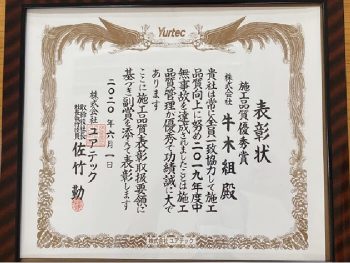 Yurtec
表彰状
施工品質優秀賞
株式会社 牛木組 殿
貴社は常に全員一致協力して施工
品質向上に努め二〇一九年度中
無事故を達成されましたことは施工
品質管理が優秀で功績誠に大で
あります
ここに施工品質表彰取扱要領に
基づき副賞を添えて表彰します
二〇二〇年六月一日
株式会社ユアテック
取締役社長
佐竹 勤
株式会社 ユアテック